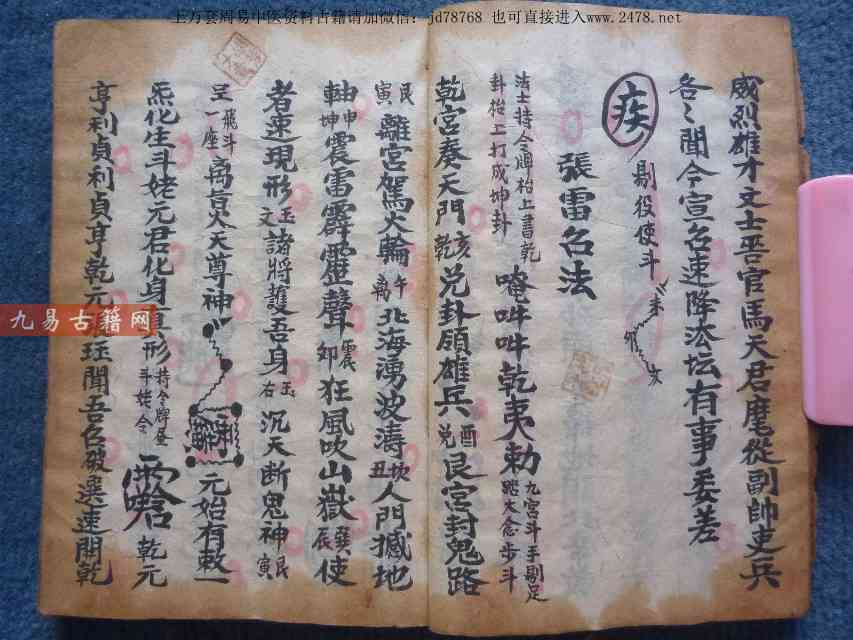 上万套周易中医资料古籍请加微信：jd78768 也可直接进入www.2478.net
威烈雄才文士吞官馬天君麾從副帥吏兵
各々聞令宣名速降法坛有事委差
疾 剔役使斗
張雷名法
法士持令牌枱上書乾
卦枱上打成坤卦
唵吽吽乾夷勅 九宮斗手剔足
踏大念步斗
乾宮奏天門 亥乾 兑卦領雄兵 酉兑 艮宮封鬼路
艮寅 離宮駕火輪 午离 北海湧波濤 坎丑 人門撼地
軸 申坤 震雷霹靂聲 震卯 狂風吹山嶽 巽辰 使
者速現形 玉文 諸將護吾身 玉右 沉天断鬼神 艮寅
呈飛斗一座 离宮火天尊神 元始有敕一
炁化生斗姥元君化身真形 持令牌召斗姥令 乾元
亨利貞利貞亨乾元 聞吾召破選速開乾
九易古籍网